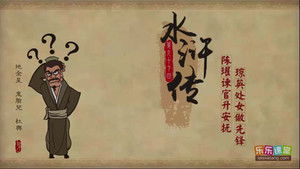 水浒传
琼英处女做先锋
陈瓘谏官升安抚
地全星
鬼臉兒
杜興
乐乐课堂
leleketang.com